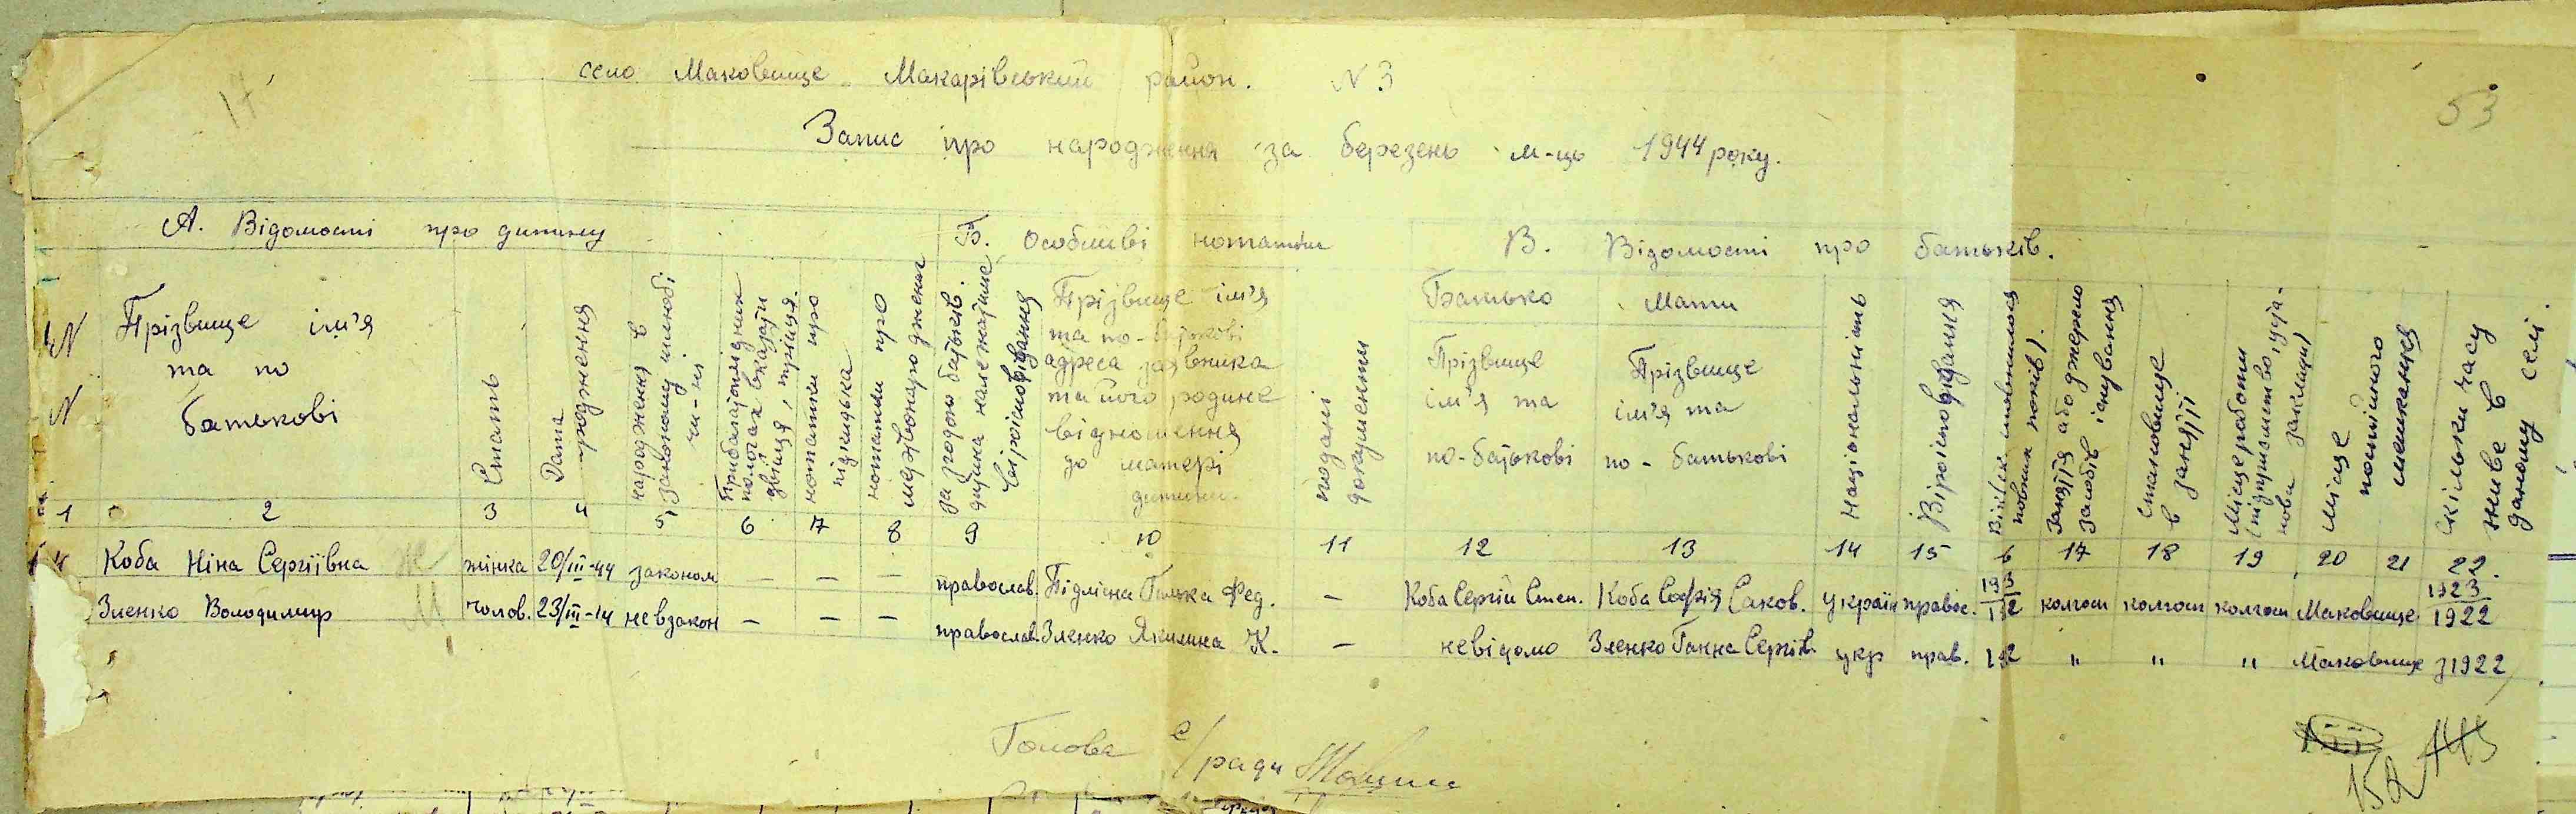 17
село Маковище Макарівський район. N 3
53
Запис про народження за березень м-ць 1944 року.
А. Відомості про дитину
Б. Особливі нотатки
В. Відомості про батьків.
N N
Прізвище ім'я
та по
батькові
Стать
Дата
народження
народження в
законному шлюбі
чи-ні
нотатки про
підкидька
нотатки про
медзвонародження
за згодою батьків
дитина належатиме
Прізвище ім'я
та по-батькові
адреса заявника
та його родине
відношення
до матері
дитини.
подані
документи
Батько
Прізвище
ім'я та
по-батькові
Мати
Прізвище
ім'я та
по-батькові
Національність
Віросповідання
Заняття або джерело
засобів існування
становище
в занятті
Місце роботи
Місце
постійного
мешкання
скільки часу
живе в
даному селі.
1 2 3 4 5 6 7 8 9 10 11 12 13 14 15 6 17 18 19 20 21 22.
4 Коба Ніна Сергіївна Ж жінка 20/III-44 законом — — — православ. Підлісна Ганка Фед. — Коба Сергій Степ. Коба Софія Саков. україн правос. колгосп колгосп колгосп Маковище 1923 1922
Зленко Володимир М чолов. 23/III-44 невзакон — — — православ. Зленко Якилина К. — невідомо Зленко Ганна Сергіїв. укр прав. " " " Маковище з 1922
Голова с/ради
152